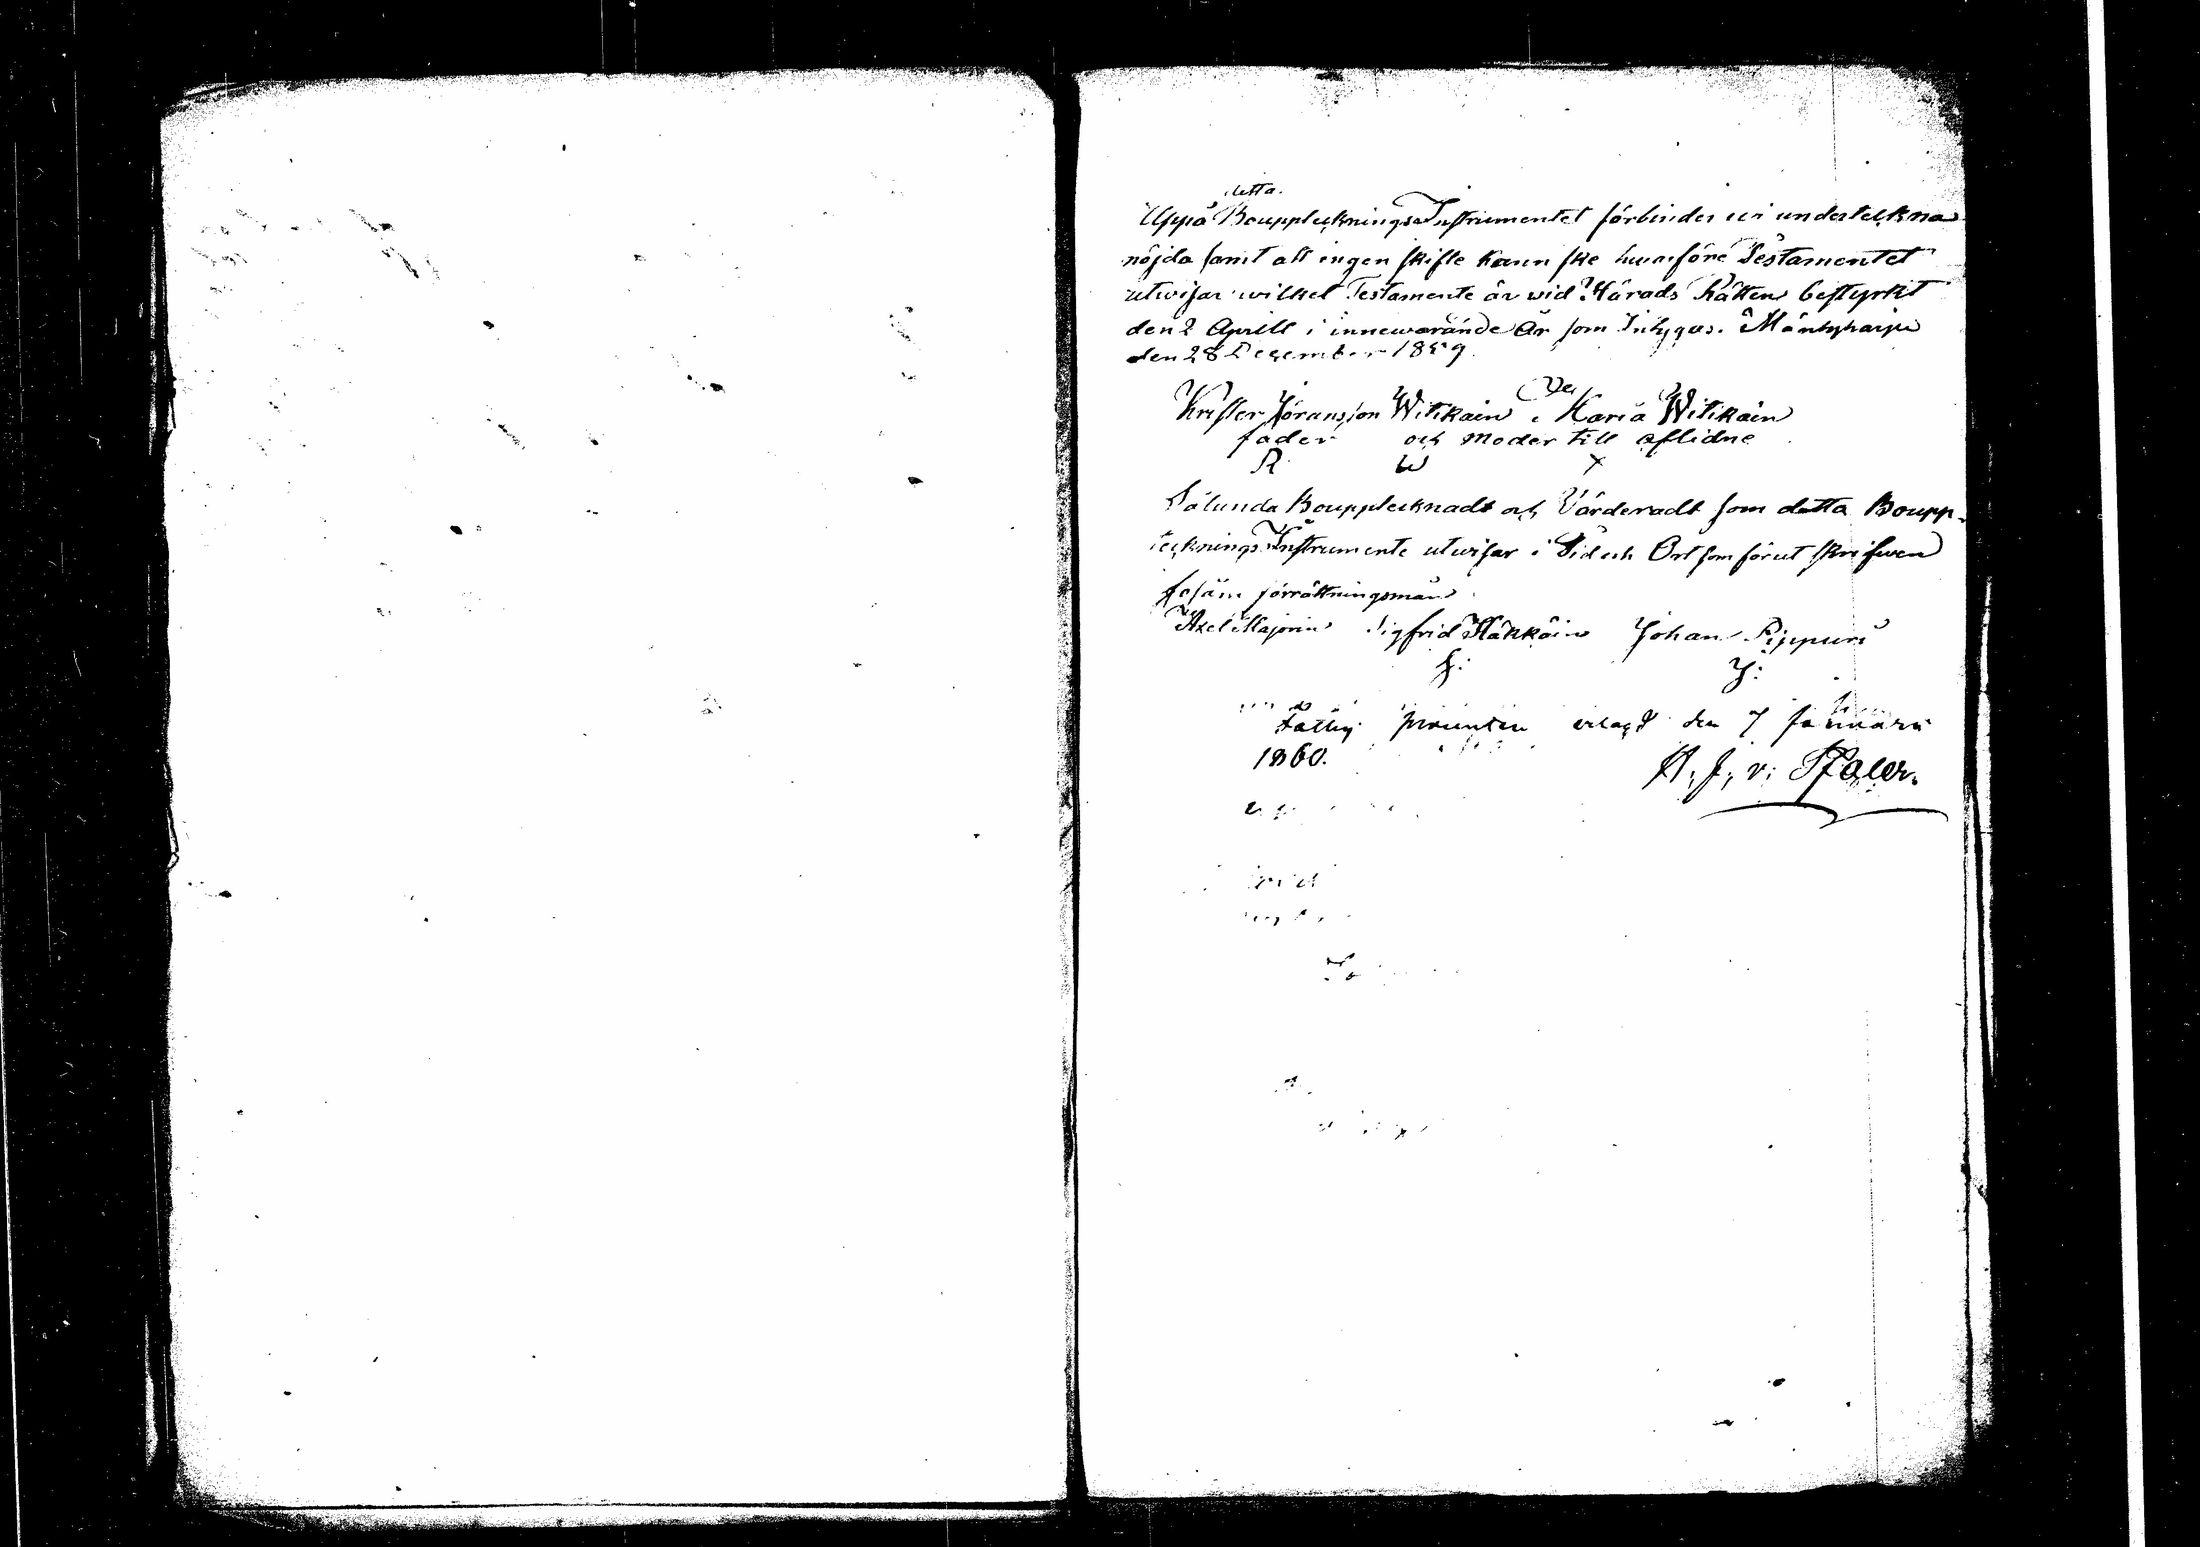 detta
Uppå Boupptecknings Instrumentet förbinder wi underteckna
nöjda samt att ingen skifte kann ske huruföre Testamentet
utwisar wilket Testamente är wid Härads Rätten bestyrkt
den 2 Aprill i innewarånde År som Intygas. Mäntyharju
den 28 Decemb. 1859
Krister Jöransson Witikain Maria Witikain
fader och moder till aflidne
R W X
Sålunda Bouppteknadt och Värderadt som detta Boupp-
tecknings Instrumente utwisar i Tid och Ort som förut skrifwen
förrättningsmän
Axel Majorin Sigfrid Häkkäin Johan Pippuri
J:
Fattig procenten erlagd den 7 Januari
1860.
A. F. v: Pfaler.